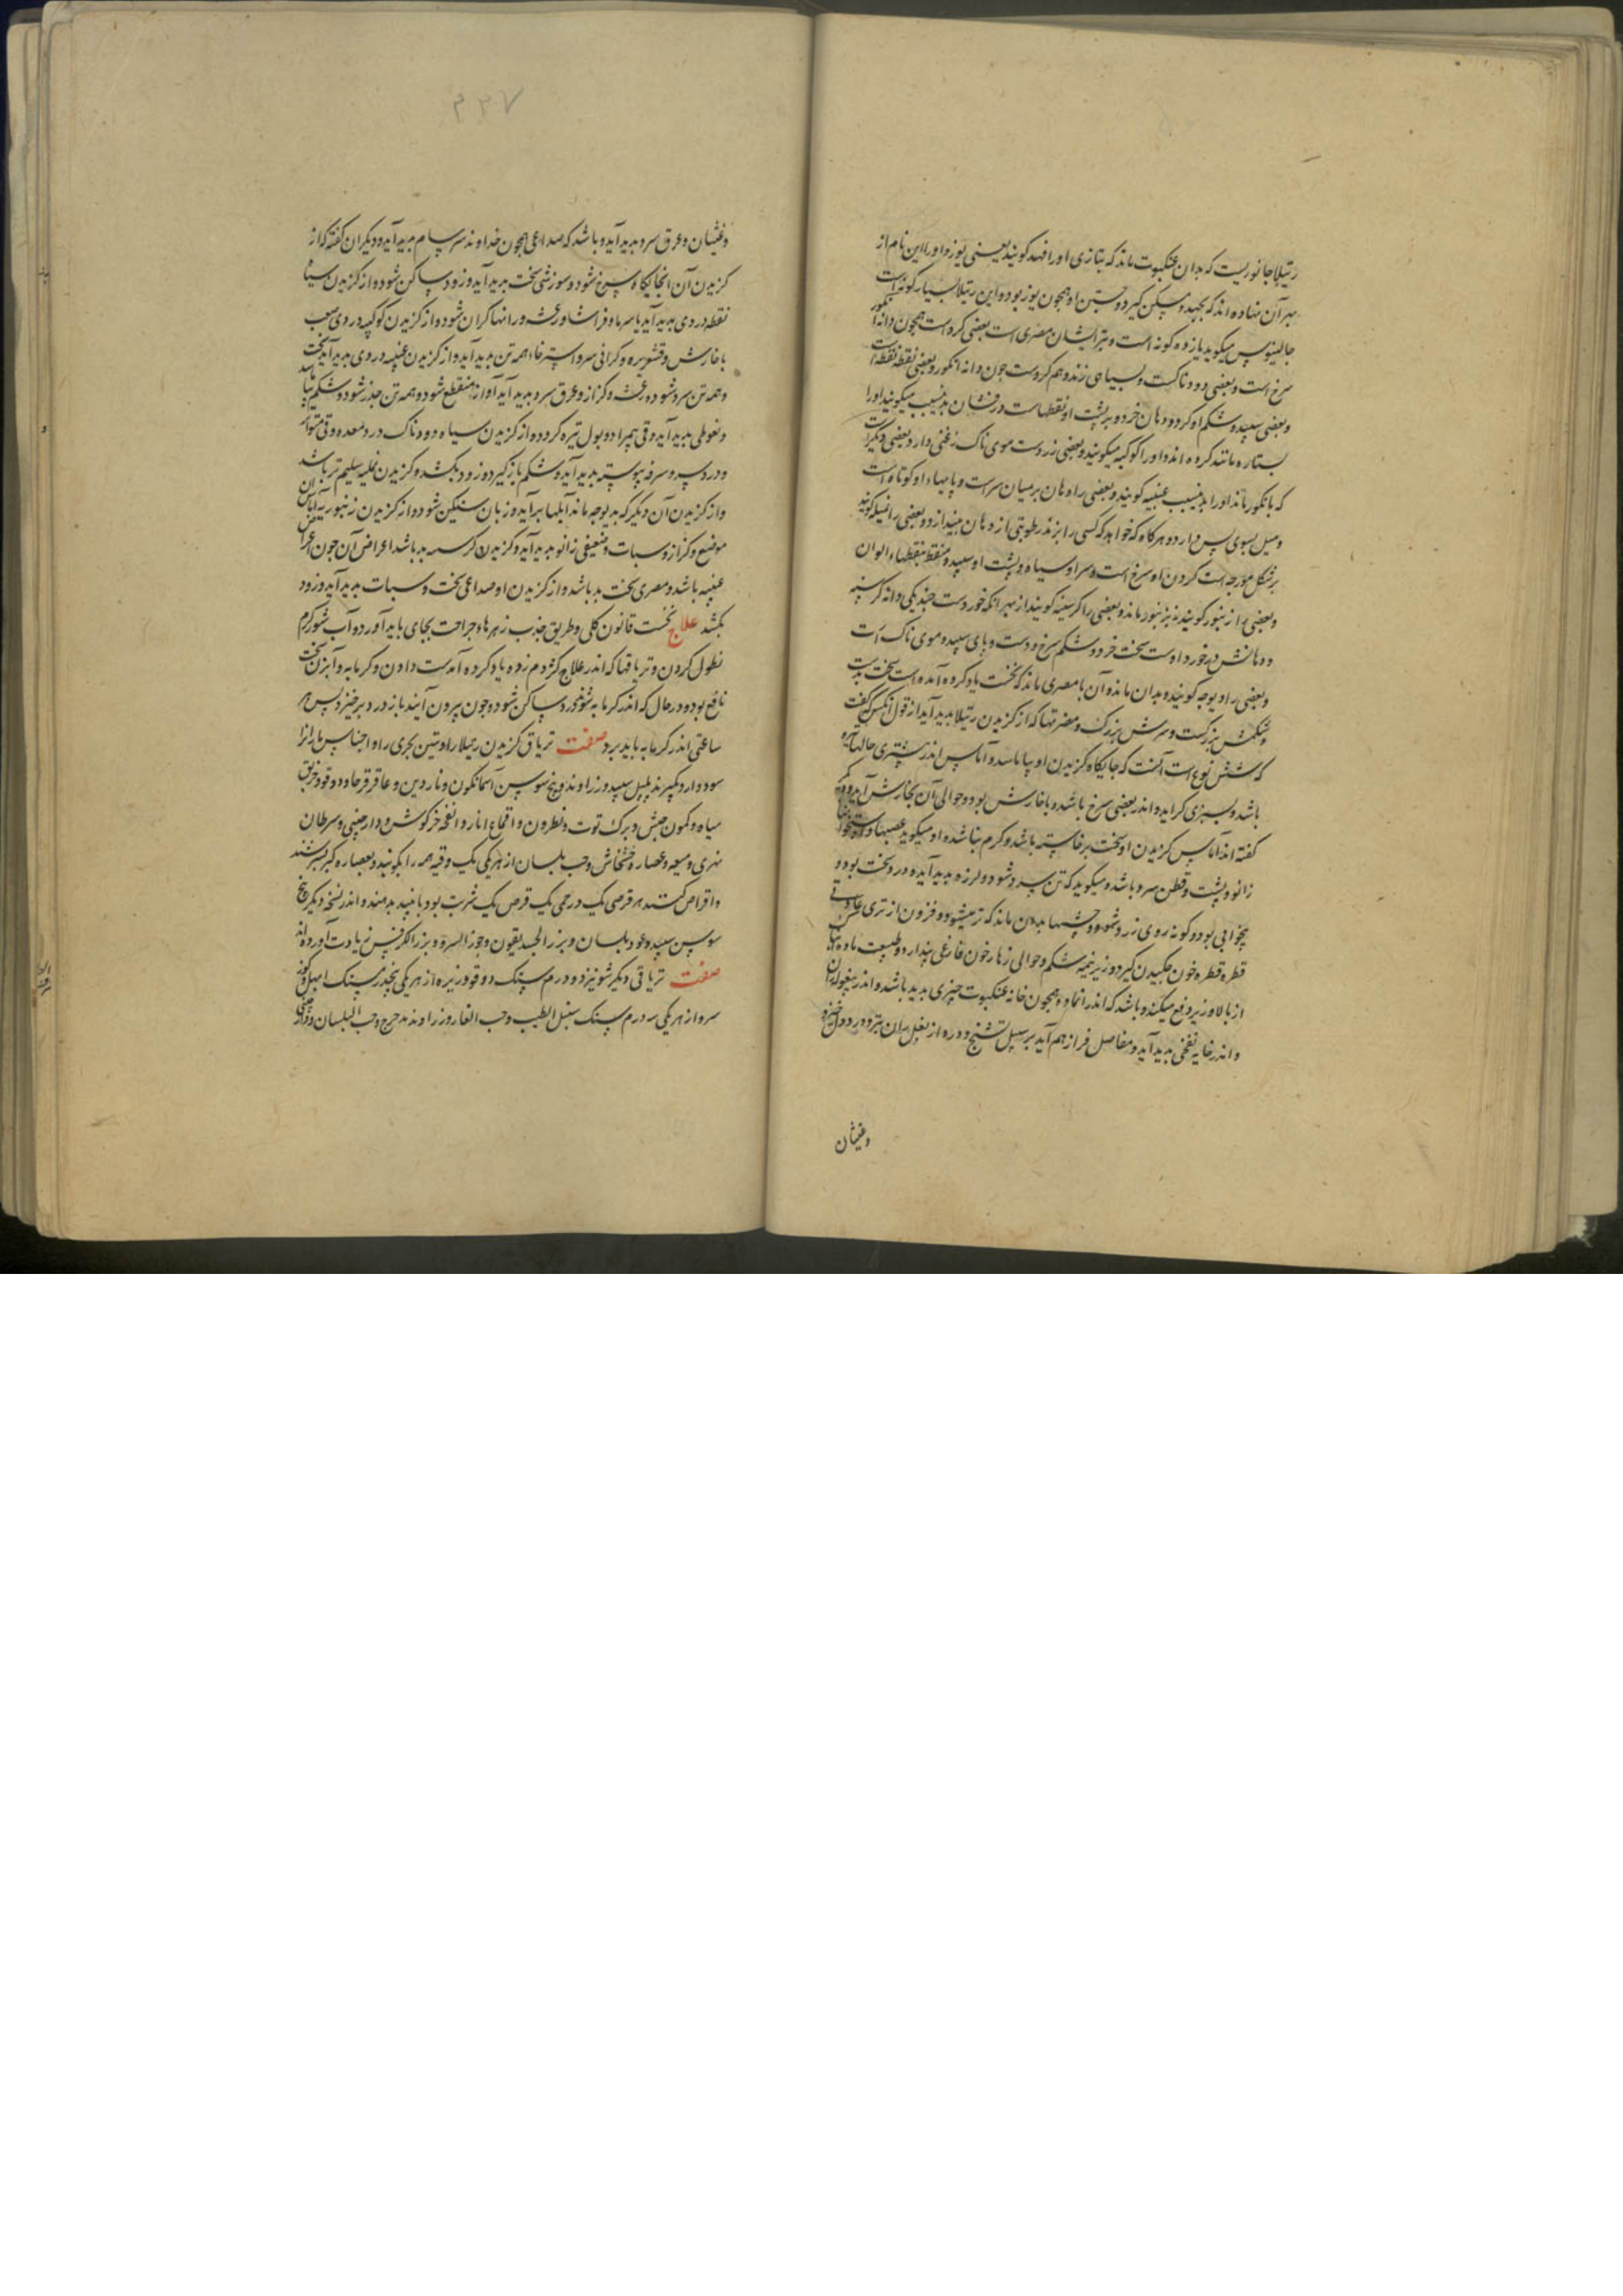 رتیلا جانوریست که بدان عنکبوت ماند که بتازی اورا فهد کویند یعنی یوز و اورا این نام از
بهر آن نهاده اند که بجهد و مکس کیرد و جستن او همچون یوز بود و این رتیلا بسیار کونه است
جالینوس میکوید یازده کونه است و بتر ایشان مصری است بعضی کرد است همچون دانه انکور
سرخ است و بعضی دودناکست و بسیاهی زند و هم کردست چون دانه انکور و بعضی نقطه نقطه است
و بعضی سپید و شکم او کرد و دهان خرد و بر پشت او نقطهاست درفشان بدین سبب میکویند اورا
بستاره مانند کرده اند و اورا کوکبه میکویند و بعضی زردست موی ناک زغبی دارد و بعضی دیکرست
که بانکور ماند اورا بدین سبب عنبیه کویند و بعضی را دهان بر میان سر است و پایها او کوتاه است
و میل بسوی پس دارد و هرکاه که خواهد که کسی را بزند رطوبتی از دهان بیندازد و بعضی را نملیه کویند
بر شکل مورچه است کردن او سرخ است و سر او سیاه و پشت او سپید و منقط بنقطهاء الوان
و بعضی را زنبور کویند بزنبور ماند و بعضی را کرسنه کویند از بهر انکه خوردست چند یکی دانه کرسنه
و دهانش در خورد اوست سخت خرد و شکم سرخ و دست و پای سپید و موی ناک است
و بعضی را دیوجه کویند و بدان ماند و آن با مصری ماند که نخست یاد کرده آمده است سخت بدست
و شکمش بزرکست و سرش بزرک و مضرتها که از کزیدن رتیلا بدید آید از قول انکس که گفت
که شش نوع است آنست که جایکاه کزیدن او بیاماسد و آماس اندر بیشتری حالها تیره
باشد و بسبزی کراید و اندر بعضی سرخ باشد و با خارش بود و حوالی آن بخارش آید و
گفته اند آماس کزیدن او سخت برخاسته باشد و کرم نباشد و او میکوید عصبها و استخوانها
زانو و پشت و قطن سرد باشد و میکوید که تن سرد شود و لرزه بدید آید و درد سخت بود و
بیخوابی بود و کونه روی زرد شود و چشمها بدان ماند که تر میشود و فزون از تری عادتی
قطره قطره خون چکیدن کیرد و زیر نیمه شکم و حوالی زهار خون فارغی پندارد و طبیعت ماده
از بالا و زیر دفع میکند و باشد که اندر انما و همچون خانه عنکبوت چیزی بدید باشد و اندر بیغوله ران
و اندر خایه نفخی بدید آید و مفاصل فراز هم آید بر سبیل تشنج و درد از بغل بران بتر و درد دل خیزد
وغثیان
۳۳۷
وغثیان و عرق سرد بدید آید و باشد که صداعی همچون خداوند سرسام بدید آید و دیکران گفته که از
کزیدن آن انجایکاه سرخ شود و سوزشی سخت بدید آید و زود ساکن شود و از کزیدن سیاه
نقطه دردی بدید آید با سرما و فراشا و رعشه و رانها کران شود و از کزیدن کوکبیه دردی صعب
با خارش و قشعریره و کرانی سر و استرخاء همه تن بدید آید و از کزیدن عنبیه دردی بدید آید سخت
و همه تن سرد شود و رعشه و کزاز و عرق سرد بدید آید آواز منقطع شود و همه تن خدر شود و شکم بیاماسد
و نعوظی بدید آید و قی بمراد و بول تیره کردد و از کزیدن سیاه دودناک درد معده و قی متواتر
و درد سر و سرفه پیوسته بدید آید و شکم بازکیرد و زود بکشد و کزیدن نملیه سلیم تر باشد
و از کزیدن آن دیکر که بدیوجه ماند آبلها برآید و زبان سنکین شود و از کزیدن زنبوریه آماس آن
موضع و کزاز و سبات و ضعیفی زانو بدید آید و کزیدن کرسنه بد باشد اعراض آن چون اعراض
عنبیه باشد و مصری سخت بد باشد و از کزیدن او صداعی سخت و سبات بدید آید و زود
بکشد علاج نخست قانون کلی و طریق جذب زهرها و جراحت بجای باید آورد و آب شور کرم
نطول کردن و تریاقها که اندر علاج کژدم زده یاد کرده آمدست دادن و کرمابه و آبزن سخت
نافع بود و در حال که اندر کرمابه شوند درد ساکن شود و چون بیرون آیند باز درد برخیزد پس هر
ساعتی اندر کرمابه باید برد صفت تریاق کزیدن رتیلا را و تنین بحری را و اجناس ماران را
سود دارد بکیرند پلپل سپید و زراوند و بیخ سوسن آسمانکون و ناردین و عاقرقرحا و دوقو و خربق
سیاه و کمون حبش و برک توت و نطرون و اقماع انار و انفحه خرکوش و دارچینی و سرطان
نهری و میعه و عصاره خشخاش و حب بلسان از هر یکی یک وقیه همه را بکوبند و بعصاره کبر بسرشند
و اقراص کنند هر قرصی یک درمی یک قرص یک شربت بود با نبید بدهند و اندر نسخه دیکر بیخ
سوسن سپید و عود بلسان و بزر الحندقوقی و جوز السرو و بزر الکرفس زیادت آورده اند
صفت تریاقی دیکر شونیز ده درم سنک دوقو و زیره از هر یکی پنج درم سنک ابهل و کوز
سرو از هر یکی سه درم سنک سنبل الطیب و حب الغار و زراوند مدحرج و حب البلسان و دارچینی